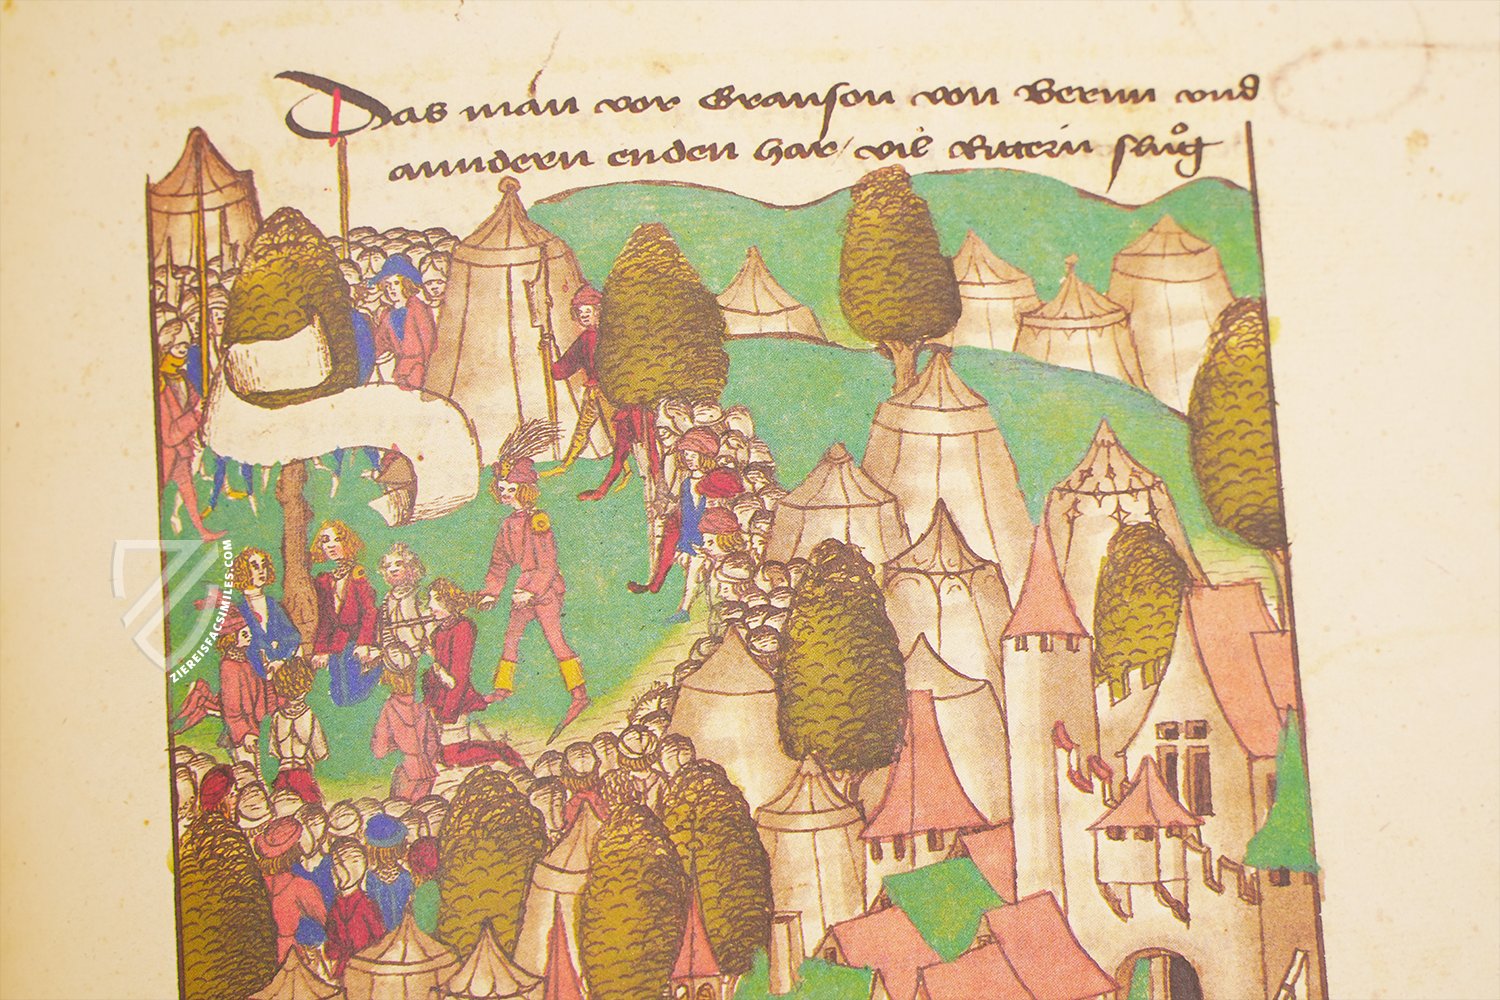 Das man vor Granson von Bernn vnd
anndern enden har / vil Rittern sluͦg
ZIEREISFACSIMILES.COM